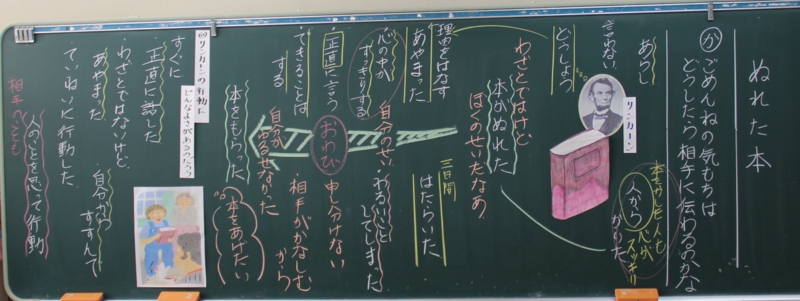 ぬれた本
め ごめんねの気もちは
どうしたら相手に伝わるのかな
リンカーン
本をかした人も
心が
スッキリ
人から
かりた
あらし
言わない
どうしよう
本がぬれた
わざとではないけど
ぼくのせいだなあ
理由をはなす
あやまった
三日間
はたらいた
心の中が
すっきりする
自分のせい
わるいことしてしまった
正直に言う
おわび
申し分けない
できることはする
相手がかなしむから
自分がゆるせなかった
本をもらった
本をあげたい
リンカーンの行動に
どんなよさがあるのだろう
すぐに
正直に話した
わざとではないけど、
あやまった
自分からすすんで
ていねいに行動した。
相手へとても
人のことを思って行動